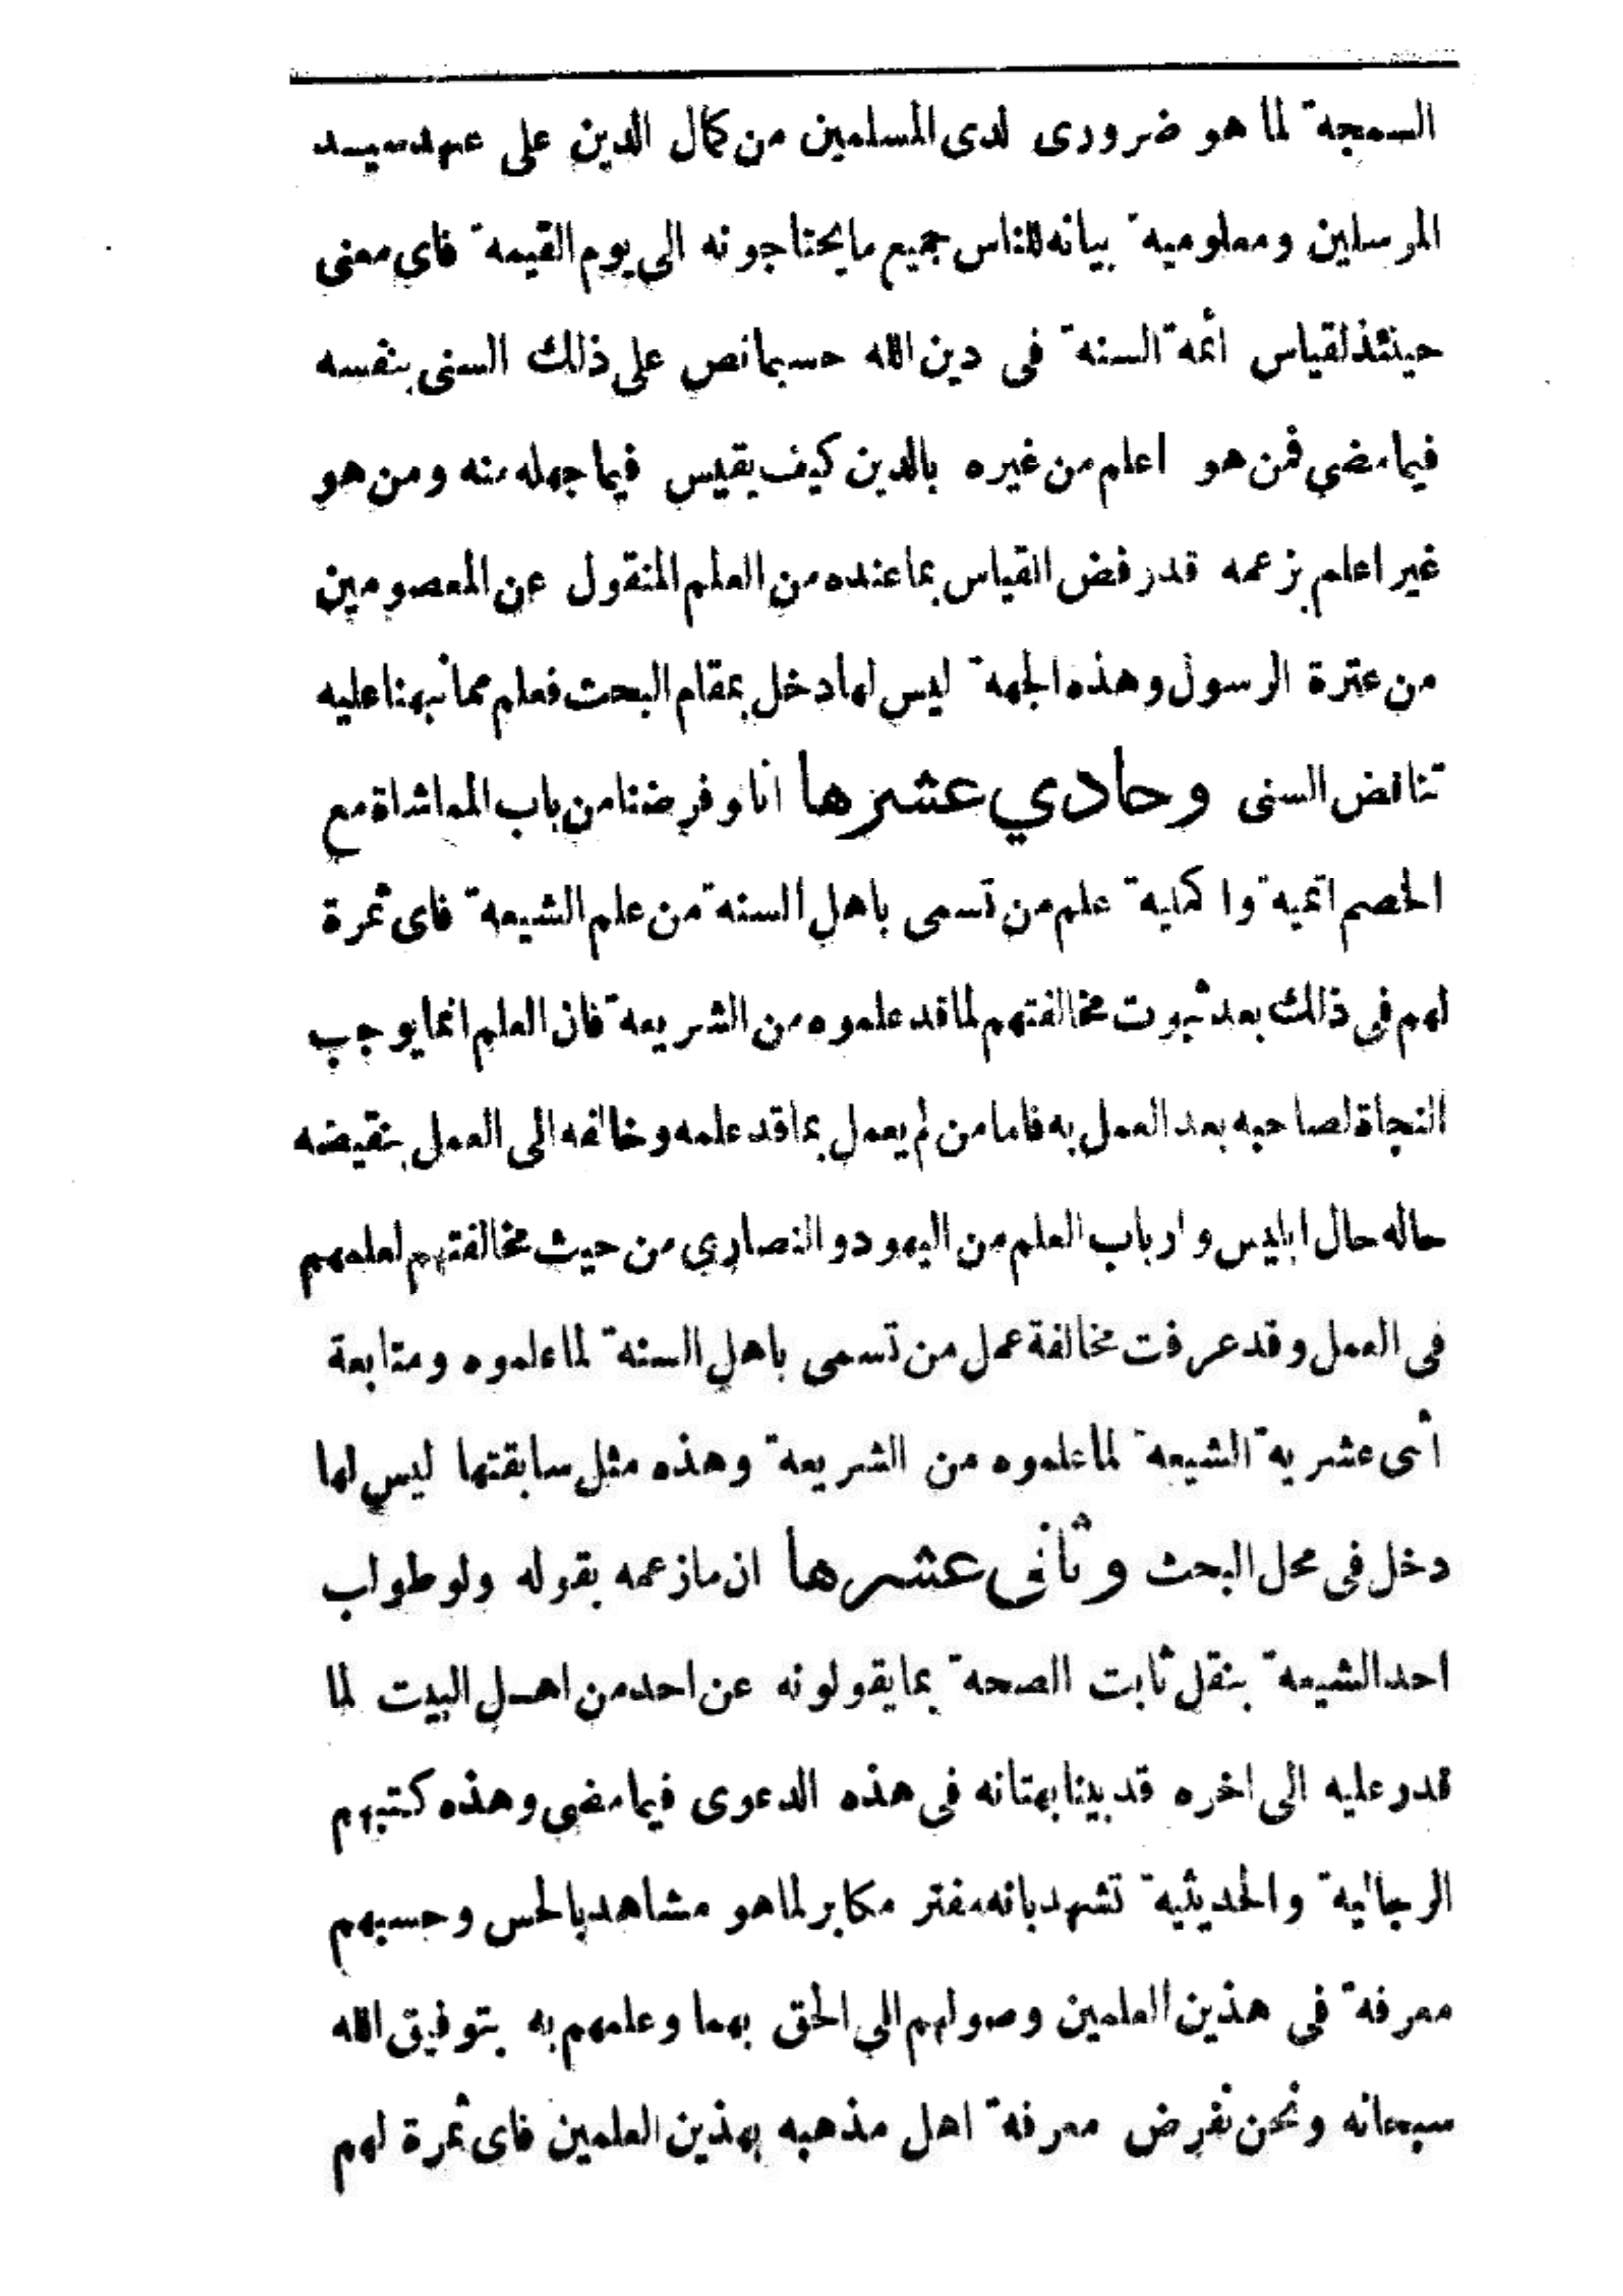 السمجة لما هو ضرورى لدى المسلمين من كمال الدين على عهد سيد
المرسلين ومعلومية بيانه للناس جميع ما يحتاجونه الى يوم القيمة فاى معنى
حينئذ لقياس أئمة السنة فى دين الله حسبما نص على ذلك السنى بنفسه
فيما مضى فمن هو اعلم من غيره بالدين كيف يقيس فيما جهله منه ومن هو
غير اعلم بزعمه قد رفض القياس بما عنده من العلم المنقول عن المعصومين
من عترة الرسول وهذه الجهة ليس لها دخل بمقام البحث فعلم مما نبهنا عليه
تناقض السنى وحادي عشرها انا وفرضنا من باب المماشاة مع
الخصم اتمية واكملية علم من تسمى باهل السنة من علم الشيعة فاى ثمرة
لهم فى ذلك بعد ثبوت مخالفتهم لما قد علموه من الشريعة فان العلم انما يوجب
النجاة لصاحبه بعد العمل به فاما من لم يعمل بما قد علمه وخالفه الى العمل بنقيضه
حاله حال ابليس وارباب العلم من اليهود والنصارى من حيث مخالفتهم لعلمهم
فى العمل وقد عرفت مخالفة عمل من تسمى باهل السنة لما علموه ومتابعة
أثنى عشرية الشيعة لما علموه من الشريعة وهذه مثل سابقتها ليس لها
دخل فى محل البحث وثانى عشرها ان ما زعمه بقوله ولو طولب
احد الشيعة بنقل ثابت الصحة بما يقولونه عن احد من اهل البيت لما
قدر عليه الى اخره قد بينا بهتانه فى هذه الدعوى فيما مضى وهذه كتبهم
الرجالية والحديثية تشهد بانه مفتر مكابر لما هو مشاهد بالحس وحسبهم
معرفة فى هذين العلمين وصولهم الى الحق بهما وعلمهم به بتوفيق الله
سبحانه ونحن نفرض معرفة اهل مذهبه بهذين العلمين فاى ثمرة لهم